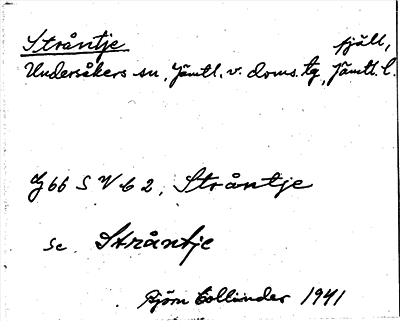 Stråntje fjäll,
Undersåkers sn, Jämtl. v. doms. tg, Jämtl. l.
J 66 S V b 2, Stråntje
se Stråntje
Björn Collinder 1941